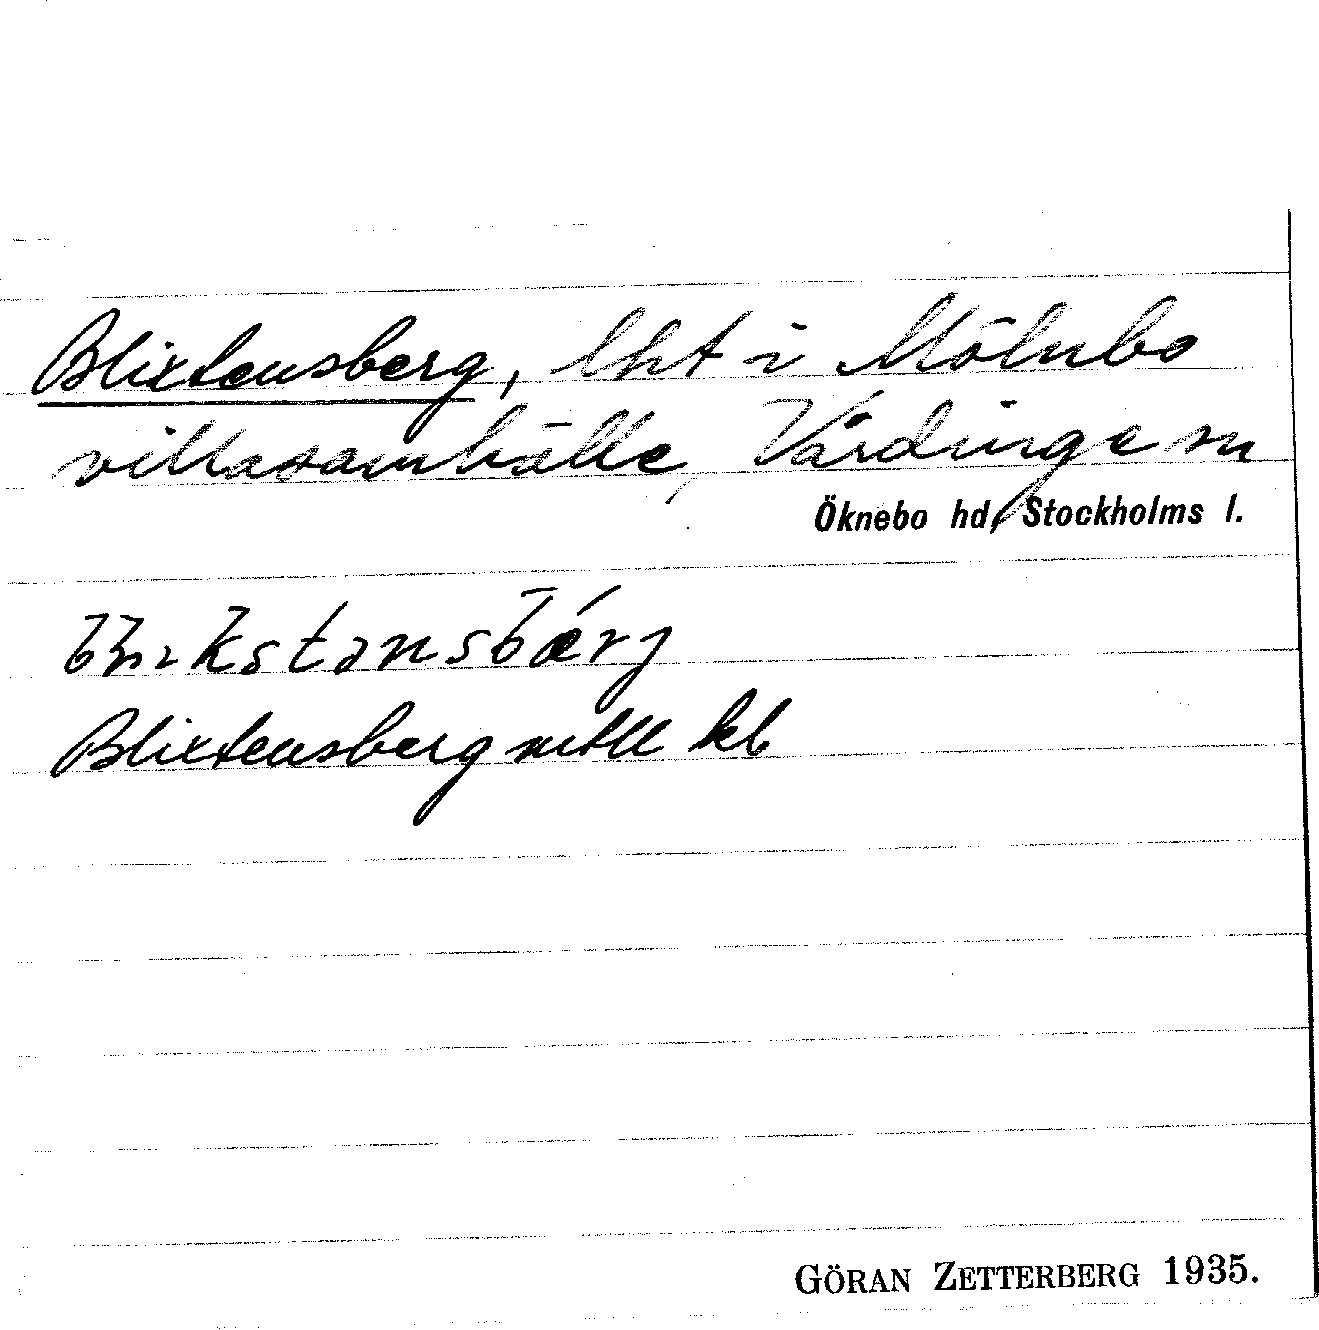 Blixtensberg, lht i Mölnbo
villasamhälle, Vårdinge sn
Öknebo hd, Stockholms l.
Blixtensberg mtll kb
GÖRAN ZETTERBERG 1935.